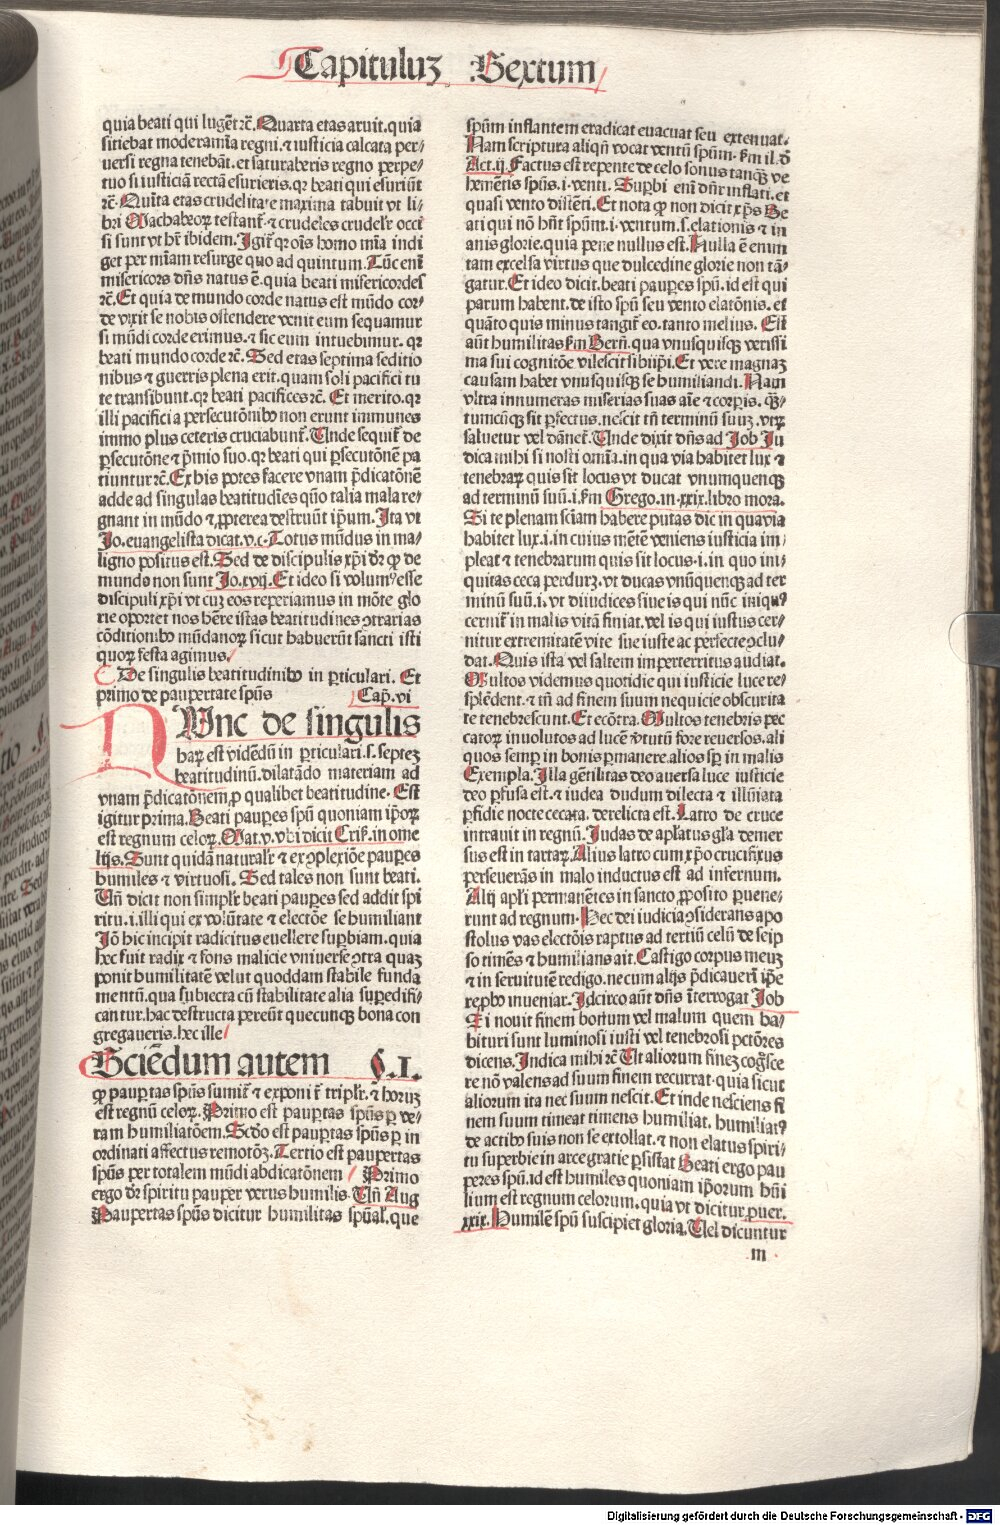 Capituluʒ Sextum
quia beati qui lugēt ⁊c̄. Quarta etas aruit. quia
sitiebat moderamīa regni. ⁊ iusticia calcata per-
uersi regna tenebāt. et saturaberis regno perpe-
tuo si iusticiā rectā esurieris. qꝛ beati qui esuriūt
⁊c̄. Quīta etas crudelitate maxima tabuit vt li-
bri Machabeoꝝ testant᷑. ⁊ crudeles crudelr̄ occi
si sunt vt hr̄ ibidem. Igit᷑ qꝛ oīs homo mīa indi
get per miam resurge quo ad quintum. Tūc enī
misericors dn̄s natus ē. quia beati misericordes
⁊c̄. Et quia de mundo corde natus est mūdo cor-
de vixit se nobis ostendere venit eum sequamur
si mūdi corde erimus. ⁊ sic eum intuebimur. qꝛ
beati mundo corde ⁊c̄. Sed etas septima seditio
nibus ⁊ guerris plena erit. quam soli pacifici tu
te transibunt. qꝛ beati pacifices ⁊c̄. Et merito. qꝛ
illi pacifici a persecutōnibꝰ non erunt immunes
immo plus ceteris cruciabunt᷑. Unde sequit᷑ de
ꝑsecutōne ⁊ p̄mio suo. qꝛ beati qui ꝑsecutōnē pa
tiuntur ⁊c̄. Ex his potes facere vnam p̄dicatōnē
adde ad singulas beatitudīes quō talia mala re-
gnant in mūdo ⁊ ꝓpterea destruūt ip̄um. Ita vt
Jo. euangelista dicat. v. c. Totus mūdus in ma-
ligno positus est. Sed de discipulis xp̄i dr̄ ꝙ de
mundo non sunt Jo. xvij. Et ideo si volumꝰ esse
discipuli xp̄i vt cuʒ eos reperiamus in mōte glo
rie oportet nos hr̄e istas beatitudines ꝯtrarias
cōditionibꝰ mūdanoꝝ sicut habuerūt sancti isti
quoꝝ festa agimus.
De singulis beatitudinibꝰ in ꝑticulari. Et
primo de paupertate spūs Cap. vi
NUnc de singulis
haꝝ est vidēdū in ꝑticulari. s. septeʒ
beatitudinū. dilatādo materiam ad
vnam p̄dicatōnem, ꝓ qualibet beatitudine. Est
igitur prima. Beati pauꝑes spū quoniam ip̄oꝝ
est regnum celoꝝ. Mat. v. vbi dicit Cris. in ome
lijs. Sunt quidā naturalr̄ ⁊ ex ꝯplexiōe pauꝑes
humiles ⁊ virtuosi. Sed tales non sunt beati.
Un̄ dicit non simplr̄ beati pauꝑes sed addit spi
ritu. i. illi qui ex volūtate ⁊ electōe se humiliant
Iō hic incipit radicitus euellere suꝑbiam. quia
hec fuit radix ⁊ fons malicie vniuerse ꝯtra quaʒ
ponit humilitatē velut quoddam stabile funda
mentū. qua subiecta cū stabilitate alia suꝑedifi-
cantur. hac destructa pereūt quecunqꝫ bona con
gregaueris. hec ille
Sciēdum autem §. I.
ꝙ pauꝑtas spūs sumit᷑ ⁊ exponit᷑ triplr̄. ⁊ horuʒ
est regnū celoꝝ. Primo est pauꝑtas spūs ꝑ ve-
ram humiliatōem. Scd̄o est pauꝑtas spūs ꝑ in
ordinati affectus remotōʒ. Tertio est pauꝑtas
spūs per totalem mūdi abdicatōnem Primo
ergo dr̄ spiritu pauper verus humilis. Un̄ Aug
Paupertas spūs dicitur humilitas spūal̓. que
spūm inflantem eradicat euacuat seu extenuat.
Nam scriptura aliqn̄ vocat ventū spūm. fm il. d̓
Act. ij. Factus est repente de celo sonus tanqꝫ ve
hemētis spūs. i. venti. Suꝑbi enī dn̄r inflati. et
quasi vento distēti. Et nota ꝙ non dicit xp̄s Be
ati qui nō hn̄t spūm. i. ventum. s. elationis ⁊ in
anis glorie. quia pene nullus est. Nulla ē enim
tam excelsa virtus que dulcedine glorie non tā-
gatur. Et ideo dicit. beati pauꝑes spū. id est qui
parum habent. de isto spū seu vento elatōnis. et
quāto quis minus tangit᷑ eo. tanto melius. Est
aūt humilitas fm Bern̄. qua vnusquisqꝫ verissi
ma sui cognitōe vilescit sibiip̄i. Et vere magnaʒ
causam habet vnusquisqꝫ se humiliandi. Nam
vltra innumeras miserias suas aīe ⁊ corꝑis. qꝫ-
tumcūqꝫ sit ꝑfectus. nescit tn̄ terminū suuʒ. vtꝝ
saluetur vel dānet᷑. Unde dixit dn̄s ad Job Ju
dica mihi si nosti omīa. in qua via habitet lux ⁊
tenebraꝝ quis sit locus vt ducat vnumquenqꝫ
ad terminū suū. i. fm Grego. in xxix. libro mora.
Si te plenam sciam habere putas dic in qua via
habitet lux. i. in cuius mētē veniens iusticia im-
pleat ⁊ tenebrarum quis sit locus. i. in quo ini-
quitas ceca perdurʒ. vt ducas vnūquenqꝫ ad ter
minū suū. i. vt diiudices siue is qui nūc iniquꝰ
cernit᷑ in malis vitā finiat. vel is qui iustus cer-
nitur extremitatē vite sue iuste ac perfecte ꝯclu-
dat. Quis ista vel saltem imperterritus audiat.
Multos videmus quotidie qui iusticie luce re-
splēdent. ⁊ tn̄ ad finem suum nequicie obscurita
te tenebrescunt. Et ecōtra. Multos tenebris pec
catoꝝ inuolutos ad lucē v̓tutū fore reuersos. ali
quos semꝑ in bonis ꝑmanere. alios sꝑ in malis
Exempla. Illa gētilitas deo auersa luce iusticie
deo ꝑfusa est. ⁊ iudea dudum dilecta ⁊ illūiata
ꝑfidie nocte cecata. derelicta est. Latro de cruce
intrauit in regnū. Judas de aplatus gl̄a demer
sus est in tartaꝝ. Alius latro cum xp̄o crucifixus
perseuerās in malo inductus est ad infernum.
Alij apl̄i permanētes in sancto ꝓposito ꝑuene-
runt ad regnum. Hec dei iudicia ꝯsiderans apo
stolus vas electōis raptus ad tertiū celū de seip
so timēs ⁊ humilians ait. Castigo corpus meuʒ
⁊ in seruitutē redigo. ne cum alijs p̄dicauerī ip̄e
reꝓbꝰ inueniar. Idcirco aūt dn̄s īterrogat Job
Si nouit finem bonum vel malum quem ha-
bituri sunt luminosi iusti vel tenebrosi pctōres
dicens. Indica mihi ⁊c̄ Ut aliorum fineʒ cogsce
re nō valens ad suum finem recurrat. quia sicut
aliorum ita nec suum nescit. Et inde nesciens fi
nem suum timeat timens humiliat. humiliatꝰ
de actibꝰ suis non se extollat. ⁊ non elatus spiri-
tu superbie in arce gratie ꝑsistat Beati ergo pau
peres spū. id est humiles quoniam ip̄orum hūi
lium est regnum celorum. quia vt dicitur ꝓuer.
xxix. Humilē spū suscipiet gloria. Uel dicuntur
m
Digitalisierung gefördert durch die Deutsche Forschungsgemeinschaft - DFG